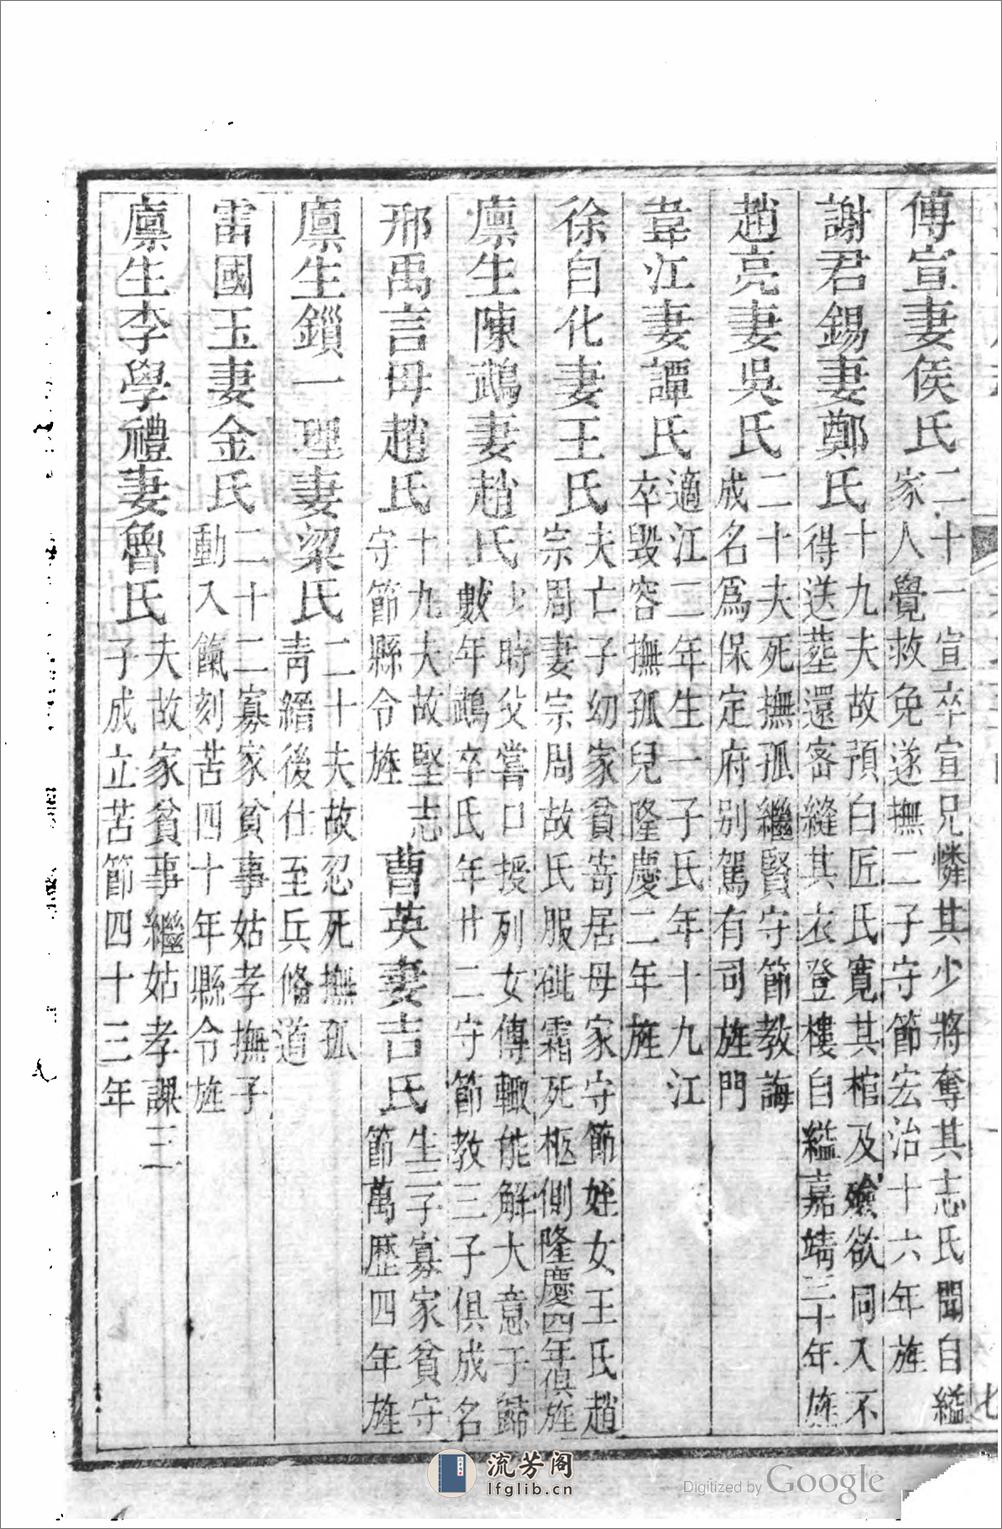 傅宣妻侯氏二十一宣卒宣兄憐其少將奪其志氏聞自縊
家人覺救免遂撫二子守節宏治十六年旌
謝君錫妻鄭氏十九夫故預白匠氏寬其棺及殮欲同入不
得送塟還密縫其衣登樓自縊嘉靖三十年旌
趙亮妻吳氏二十夫死撫孤繼賢守節教誨
成名爲保定府別駕有司旌門
韋江妻譚氏適江二年生一子氏年十九江
卒毀容撫孤兒隆慶二年旌
徐自化妻王氏夫亡子幼家貧寄居母家守節姪女王氏趙
宗周妻宗周故氏服砒霜死柩側隆慶四年俱旌
廪生陳鵡妻趙氏少時父嘗口授列女傳輙能解大意子歸
數年鵡卒氏年廿二守節教三子俱成名
邢禹言母趙氏十九夫故堅志
守節縣令旌
曹英妻吉氏生三子寡家貧守
節萬歷四年旌
廪生鎻一理妻梁氏二十夫故忍死撫孤
青縉後仕至兵備道
雷國玉妻金氏二十二寡家貧事姑孝撫子
動入餼刻苦四十年縣令旌
廪生李學禮妻魯氏夫故家貧事繼姑孝課三
子成立苦節四十三年
流芳阁
lfglib.cn
Digitized by Google